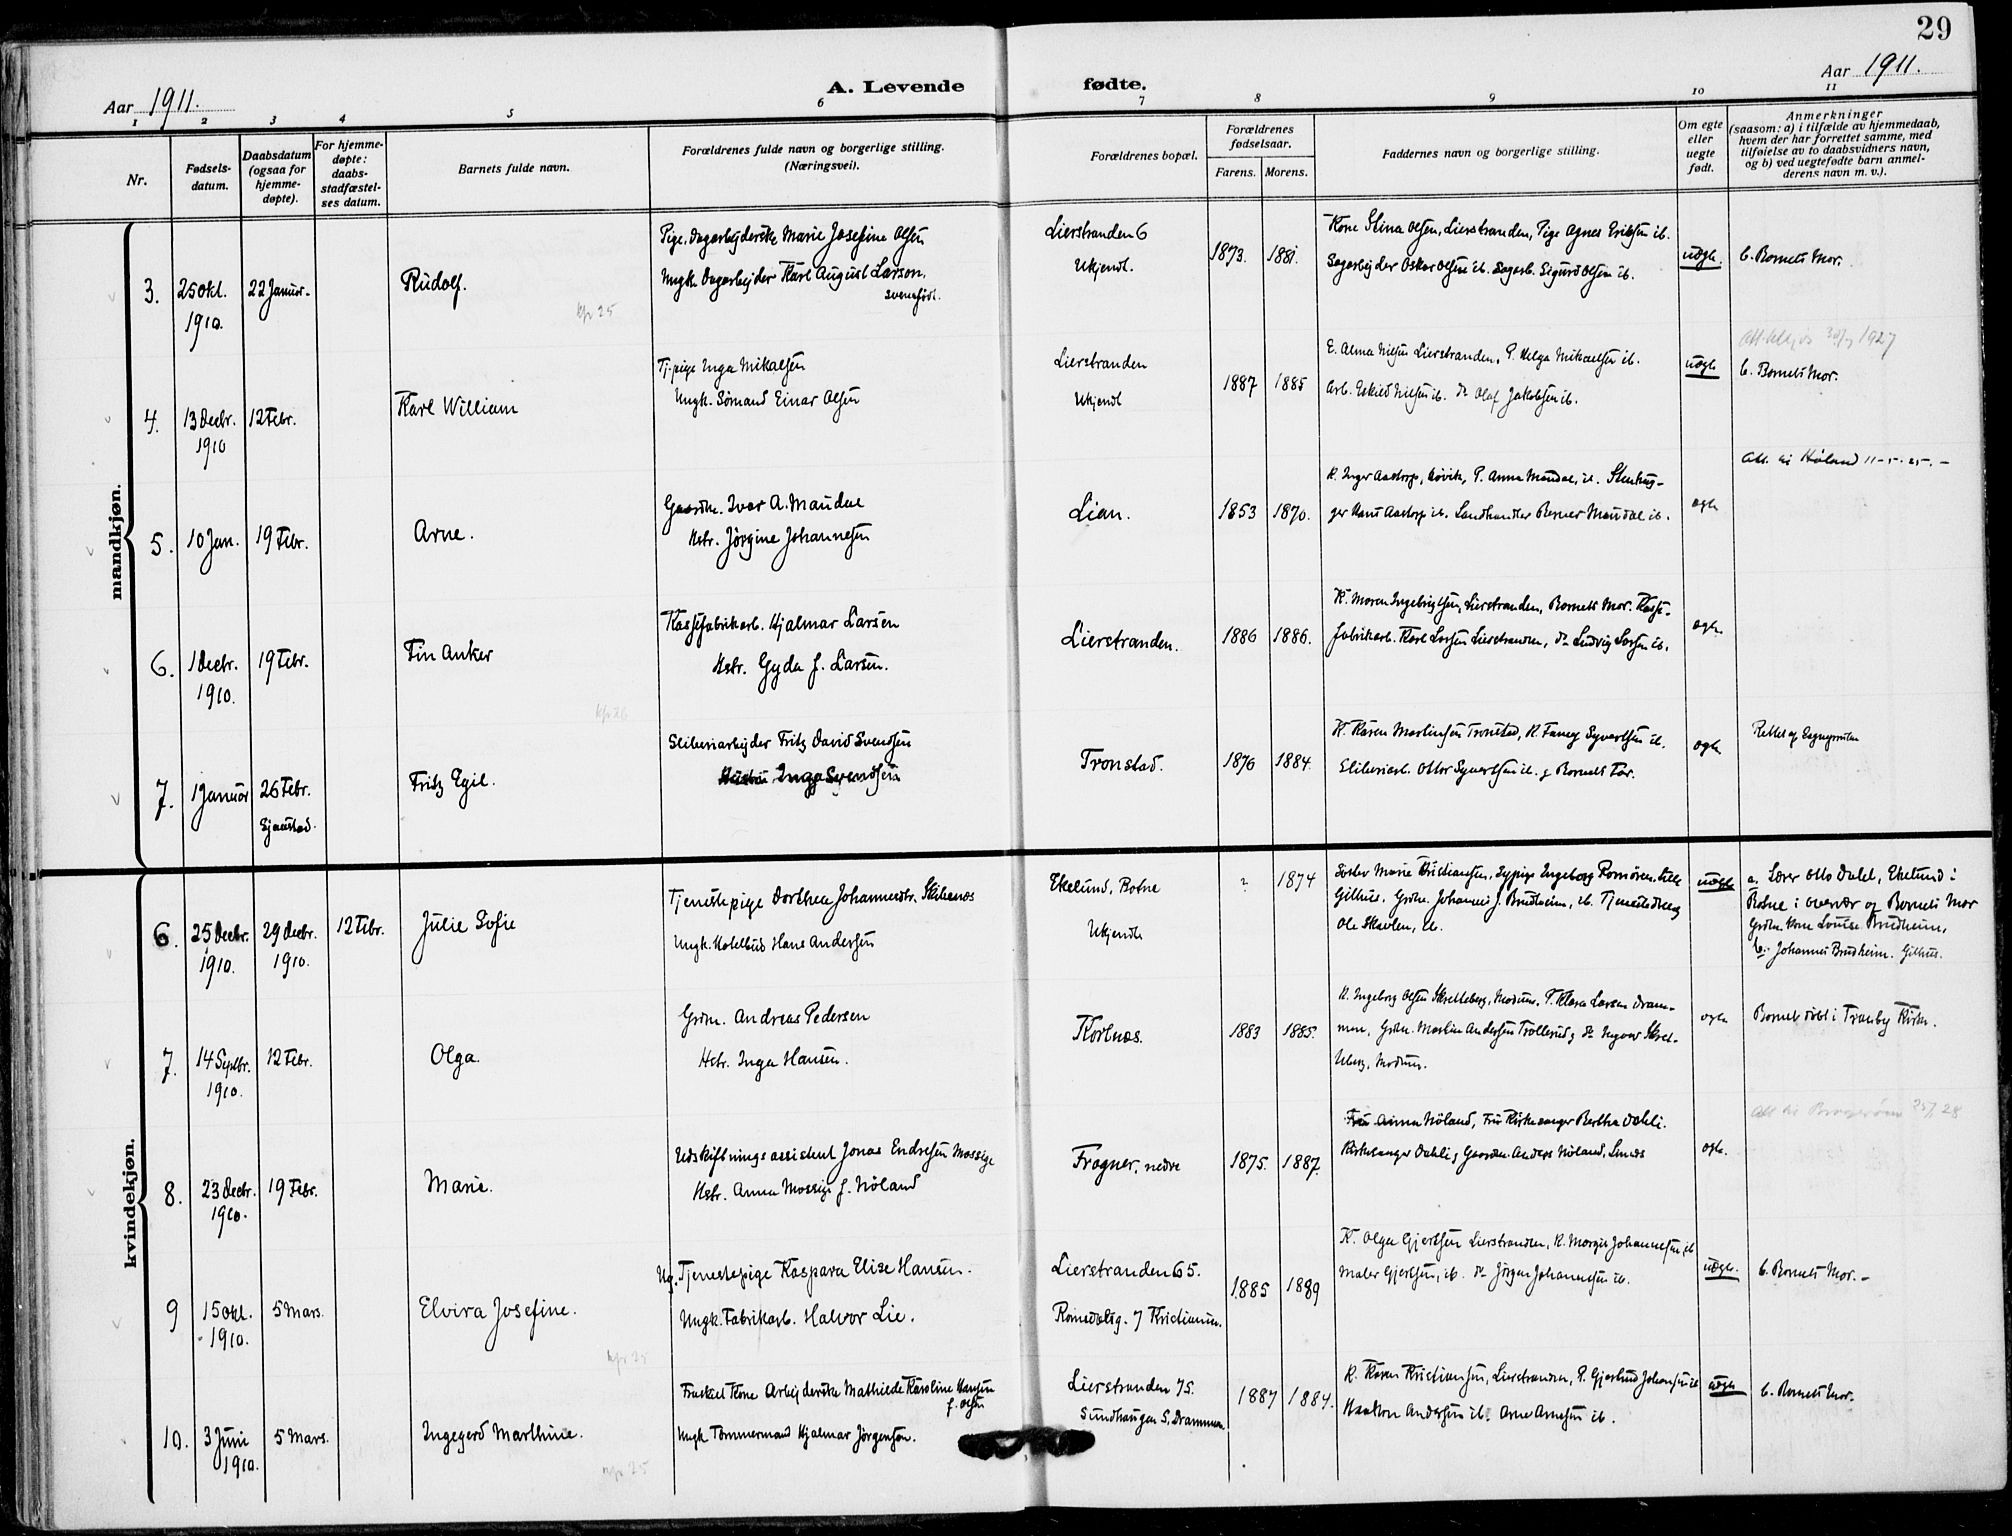 29
Aar 1911.
A. Levende fødte.
Aar 1911.
1 2 3 4 5 6 7 8 9 10 11
Nr.
Fødsels-
datum.
Daabsdatum
(ogsaa for
hjemme-
døpte).
For hjemme-
døpte:
daabs-
stadfæstel-
ses datum.
Barnets fulde navn.
Forældrenes fulde navn og borgerlige stilling.
(Næringsvei).
Forældrenes bopæl.
Forældrenes
fødselsaar.
Farens. Morens.
Faddernes navn og borgerlige stilling.
Om egte
eller
uegte
født.
Anmerkninger
(saasom: a) i tilfælde av hjemmedaab,
hvem der har forrettet samme, med
tilføielse av to daabsvidners navn,
og b) ved uegtefødte barn anmel-
derens navn m. v.).
mandkjøn.
3. 25 Okt.
1910.
22 Januar.
Rudolf.
kfr 25
Pige. Dagarbejderske Marie Josefine Olsen
Ungk. Dagarbejder Karl August Larson,
svenskfødt.
Lierstranden 6
Ukjendt.
1873. 1881.
Kone Stina Olsen, Lierstranden, Pige Agnes Eriksen ib.
Sagarbejder Oskar Olsen ib. Sagarb. Sigurd Olsen ib.
uegte.
b. Barnets Mor.
4. 13 Decbr.
1910
12 Febr.
Karl William
Tj. pige Inga Mikalsen
Ungk. Sømand Einar Olsen
Lierstranden
Ukjendt
1887 1885
E. Alma Nilsen Lierstranden, P. Helga Mikaelsen ib.
Arb. Eskild Nilsen ib. Do Olaf Jakobsen ib.
uegte
1927
b. Barnets Mor.
5. 10 Jan. 19 Febr.
Arne.
Gaardbr. Ivar A. Maudal
Hstr. Jørgine Johannesen
Lian.
1853 1870.
K. Inger Aastorp, Røvik, P. Anna Maudal, ib. Stenhug-
ger Hans Aastorp ib. Landhandler Berner Maudal ib.
egte
Att. til Høland 11-5-25.-
6. 1 Decbr.
1910.
19 Febr.
Fin Anker
kfr 26
Kassefabrikarb. Hjalmar Larsen
Hstr. Gyda f. Larsen.
Lierstranden.
1886 1886.
K. Maren Ingebrigtsen, Lierstranden, Barnets Mor. Kasse-
fabrikarb. Karl Larsen Lierstranden, Do Ludvig Larsen ib.
egte.
7. 1 Januar 26 Febr.
Sjaastad.
Fritz Egil.
Sliberiarbejder Fritz David Svendsen
Hustru Inga Svendsen
Tronstad.
1876 1884.
K. Karen Martinsen Tronstad, K. Fanny Syvertsen ib.
Sliberiarb. Ottar Syvertsen ib. & Barnets Far.
egte
Rettet af Sogneprsten
kvindekjøn.
6. 25 Decbr.
1910.
29 Decbr.
1910.
12 Febr.
Julie Sofie
Tjenestepige Dorthea Johannesdtr. Skibenes
Ungk. Hotelbud Hans Andersen
Ekelund, Botne
Ukjendt
? 1874
Søster Marie Kristiansen, Sypige Ingeborg
Gilhus, Grdbr. Johannes J. Brudheim, ib. Tjenestedreng
Ole Skavlen, ib.
uegte
a. Lærer Otto Dahl, Ekelund i
Botne i Overvær af Barnets Mor
Grdbr. Kone Louise Brudheim,
b. Johannes Brudheim. Gilhus.
7. 14 Septbr.
1910.
12 Febr.
Olga.
Grdbr. Andreas Pedersen
Hstr. Inga Hansen.
Kortnæs.
1883 1885.
K. Ingeborg Olsen Skretteberg, Modum. P. Klara Larsen Dram-
men, Grdbr. Martin Andersen Trollerud & Do Ingvar Skret-
teberg, Modum.
egte
Barnet døbt i Tranby Kirke.
8. 23 Decbr.
1910.
19 Febr.
Marie.
Udskiftningsassistent Jonas Endresen Mossige
Hstr. Anna Mossige f. Høland
Frogner, nedre
1875. 1887.
Fru Anna Høland, Fru Kirkesanger Bertha Dahle.
Kirkesanger Dahle & Gaardbr. Anders Høland,
egte.
Att til Bragernes 25/ 28
9 15 Okt.
1910.
5 Mars.
Elvira Josefine.
kfr 25
Ug. Tjenestepige Kaspara Elise Hansen.
Ungk. Fabrikarb. Halvor Lie.
Lierstranden 65.
Romsdalsg. 7 Kristiania.
1885 1889
K. Olga Gjertsen Lierstranden, K. Margit Johannesen, ib
Maler Gjertsen, ib. Do Jørgen Johannesen ib.
uegte.
b. Barnets Mor.-
10. 3 Juni
1910.
5 Mars.
Ingegerd Marthine.
kfr 25
Fraskilt Kone Arbejderske Mathilde Karoline Hansen
f. Olsen
Ungk Tømmermand Hjalmar Jørgensen.
Lierstranden 75.
Sundhaugen S. Drammen.
1887 1884.
K. Karen Kristiansen, Lierstranden, P. Gjertrud Johansen ib
Haakon Andersen ib. Arne Arnesen ib.
uegte
b. Barnets Mor.